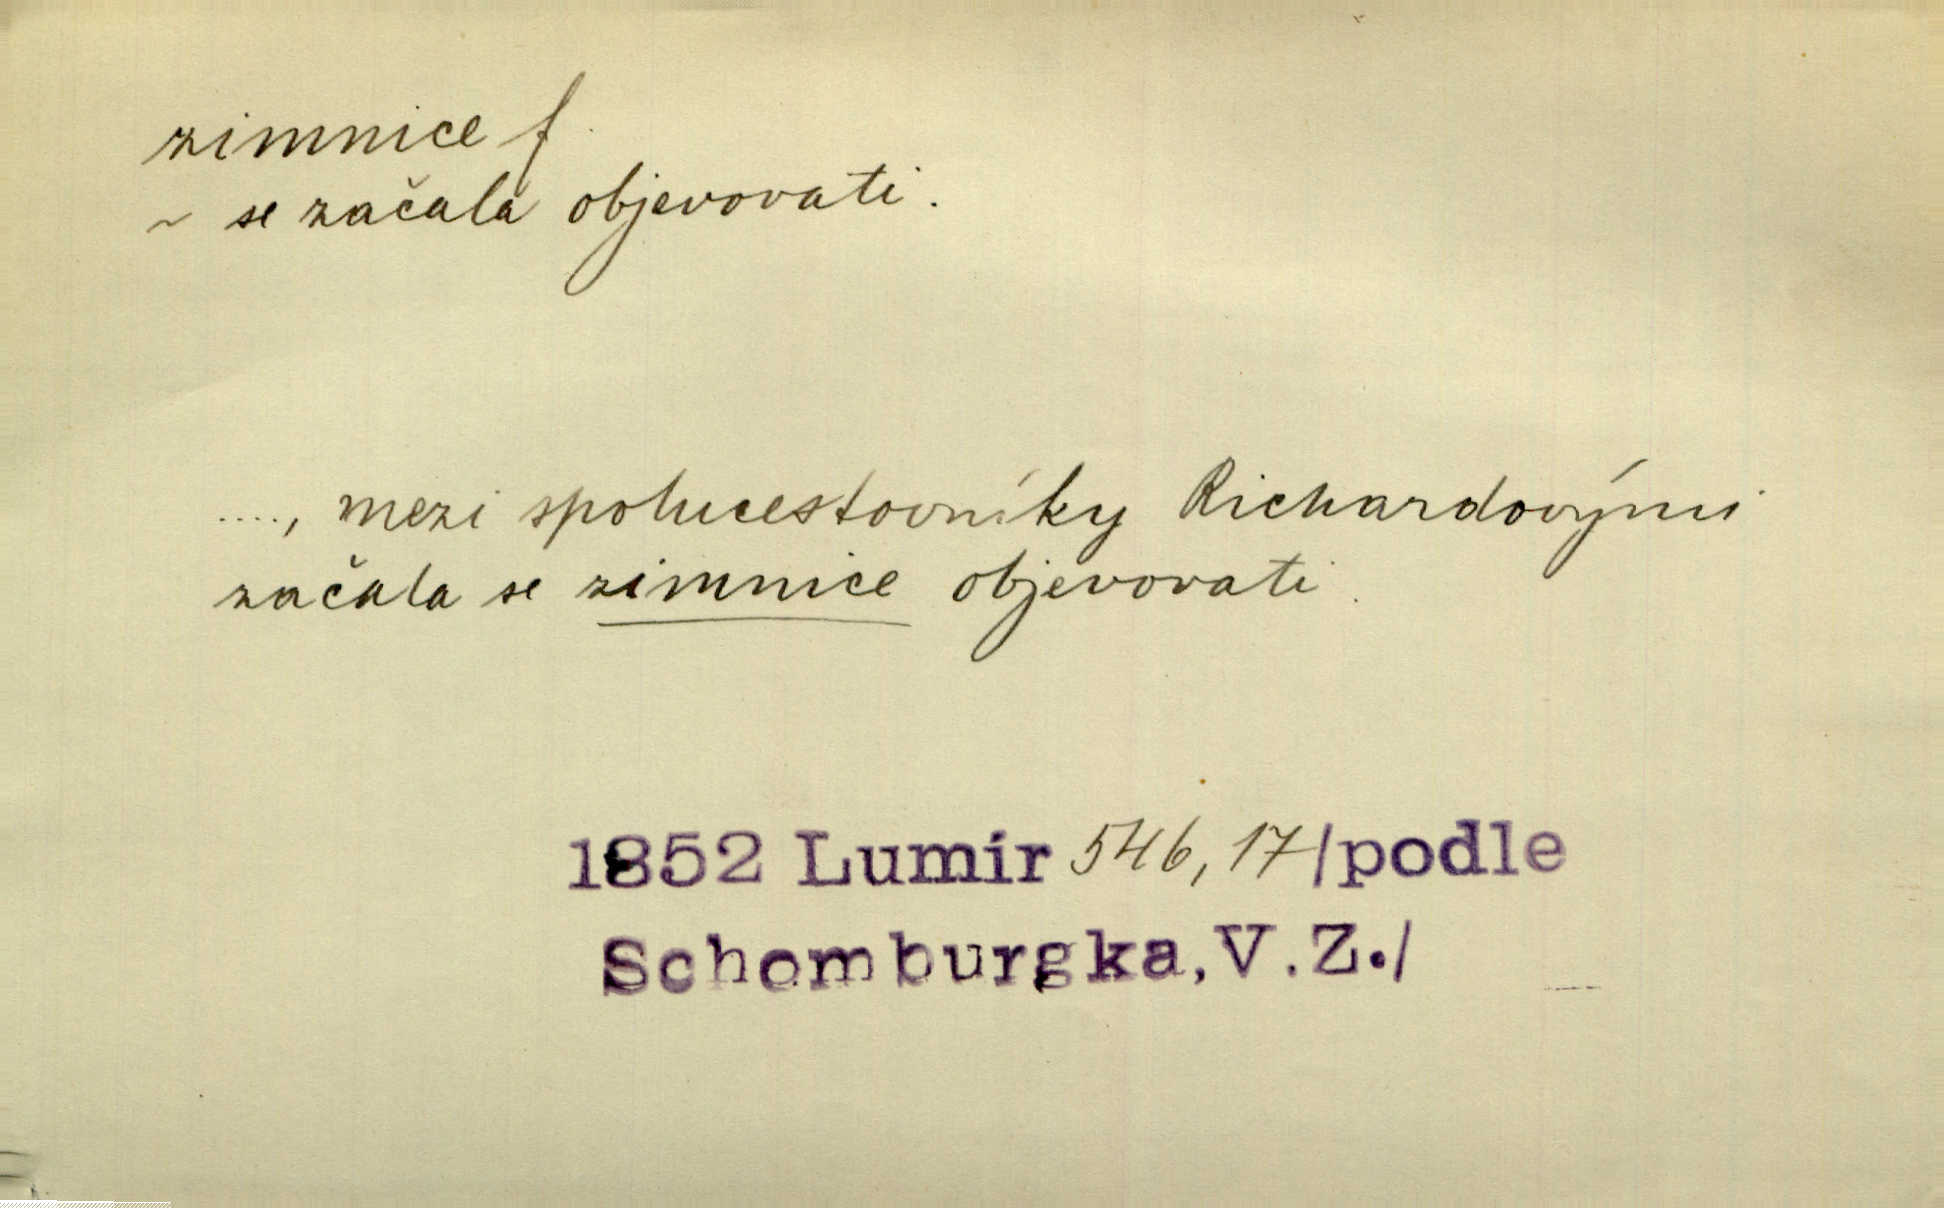 zimnice f.
~ se začala objevovati.
...., mezi spolucestovníky Richardovými
začala se zimnice objevovati.
1852 Lumír 546, 17/podle
Schomburgka,V.Z./